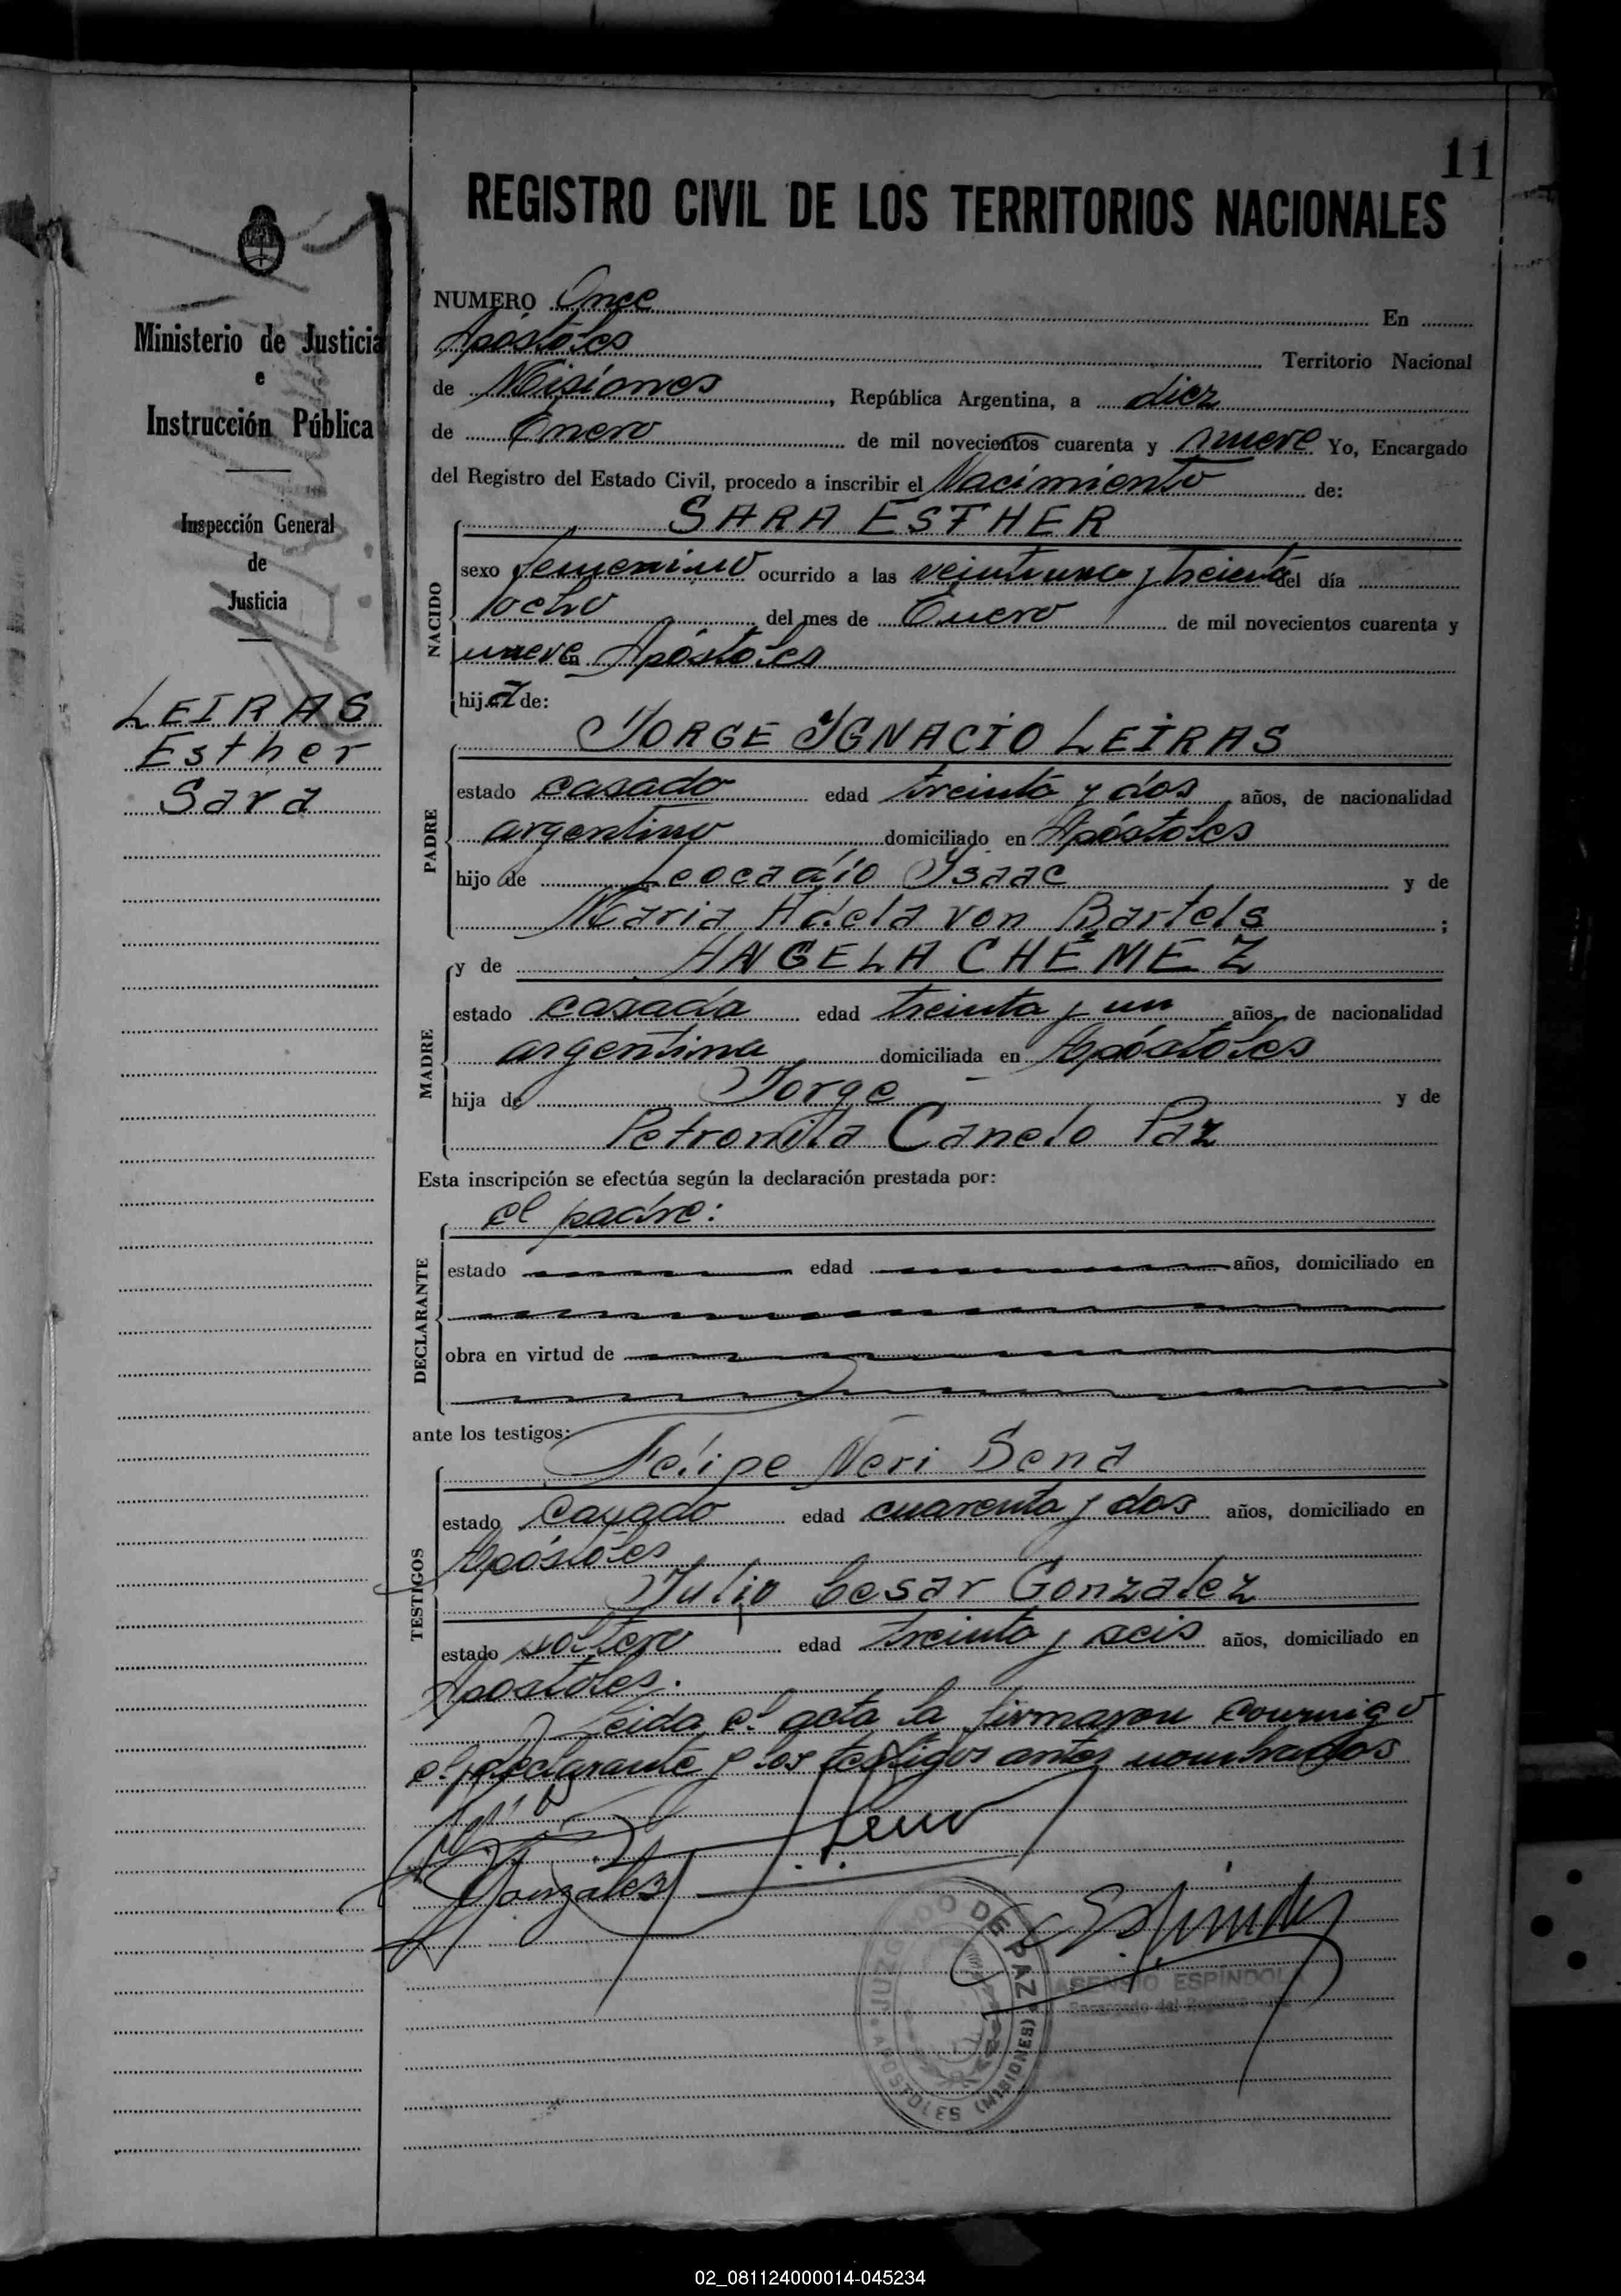 11
REGISTRO CIVIL DE LOS TERRITORIOS NACIONALES
Ministerio de Justicia
e
Instrucción Pública
Inspección General
de
Justicia
LEIRAS
Esther
Sara
NUMERO Once En
Apóstoles Territorio Nacional
de Misiones, República Argentina, a diez
de Enero de mil novecientos cuarenta y nueve Yo, Encargado
del Registro del Estado Civil, procedo a inscribir el Nacimiento de:
NACIDO
SARA ESTHER
sexo femenino ocurrido a las veintiuna y treinta del día
ocho del mes de Enero de mil novecientos cuarenta y
nueve en Apóstoles
hija de:
PADRE
JORGE IGNACIO LEIRAS
estado casado edad treinta y dos años, de nacionalidad
argentino domiciliado en Apóstoles
hijo de Leocadio Ysaac y de
Maria Adela von Bartels ;
MADRE
y de ANGELA CHEMEZ
estado casada edad treinta y un años, de nacionalidad
argentina domiciliada en Apóstoles
hija de Jorge y de
Petronila Canelo Paz
Esta inscripción se efectúa según la declaración prestada por:
DECLARANTE
el padre:
estado edad años, domiciliado en
obra en virtud de
ante los testigos:
TESTIGOS
Felipe Neri Sena
estado casado edad cuarenta y dos años, domiciliado en
Apóstoles
Julio Cesar Gonzalez
estado soltero edad treinta y seis años, domiciliado en
Apostoles.
Leida el acta la firmaron conmigo
el declarante y los testigos antes nombrados
Sena
Gonzalez
JUZGADO DE PAZ
APOSTOLES (MISIONES)
ASENSIO ESPINDOLA
Encargado del Registro
02_081124000014-045234